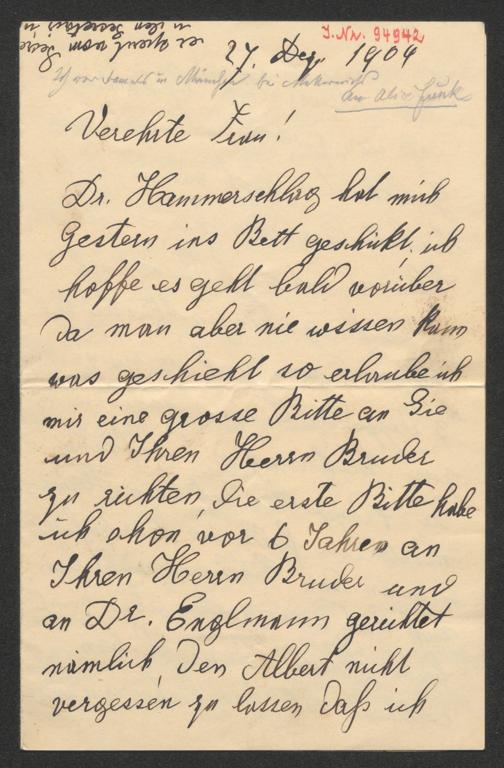 J. Nr. 94942
27. Dez. 1904
Ich war damals in München bei
An Alice Funk
Verehrte Frau!
Dr. Hammerschlag hat mich
gestern ins Bett geschikt, ich
hoffe es geht bald vorüber
da man aber nie wissen kann
was geschieht so erlaube ich
mir eine grosse Bitte an Sie
und Ihren Herrn Bruder
zu richten, die erste Bitte habe
ich schon vor 6 Jahren an
Ihren Herrn Bruder und
an Dr. Englmann gerichtet
nämlich den Albert nicht
vergessen zu lassen daß ich